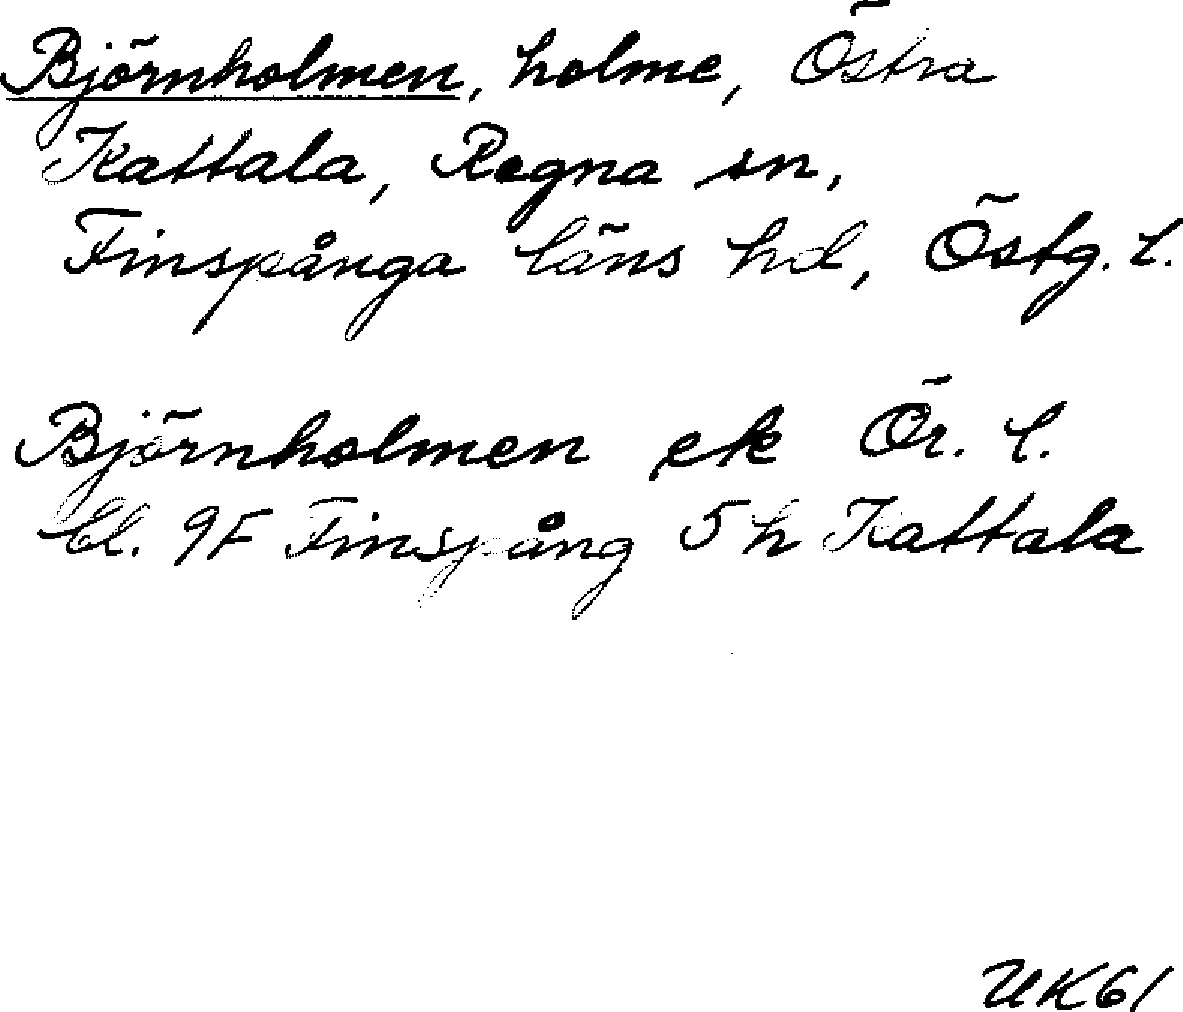 Björnholmen, holme, Östra
Kattala, Regna sn,
Finspånga läns hd, Östg. l.
Björnholmen ek Ör. l.
Bl. 9F Finspång 5h Kattala
UK61